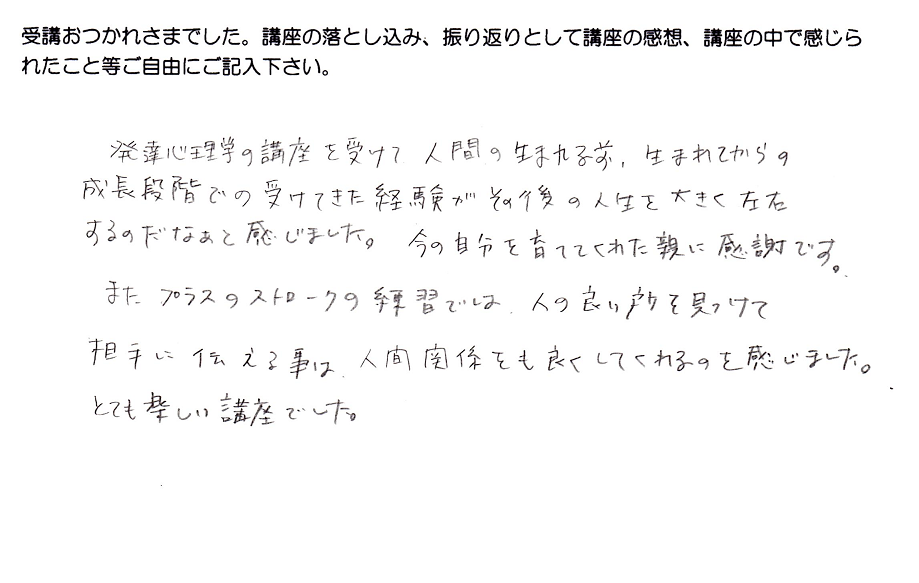 受講おつかれさまでした。講座の落とし込み、振り返りとして講座の感想、講座の中で感じら
れたこと等ご自由にご記入下さい。
発達心理学の講座を受けて人間の生まれる前、生まれてからの
成長段階での受けてきた経験がその後の人生を大きく左右
するのだなぁと感じました。今の自分を育ててくれた親に感謝です。
また プラスのストロークの練習では、人の良い所を見つけて
相手に伝える事は、人間関係をも良くしてくれるのを感じました。
とても楽しい講座でした。